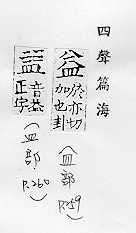 四聲篇海
益 於亦切
加也卦
(皿部 P.259)
音益
正字
(皿部 P.260)